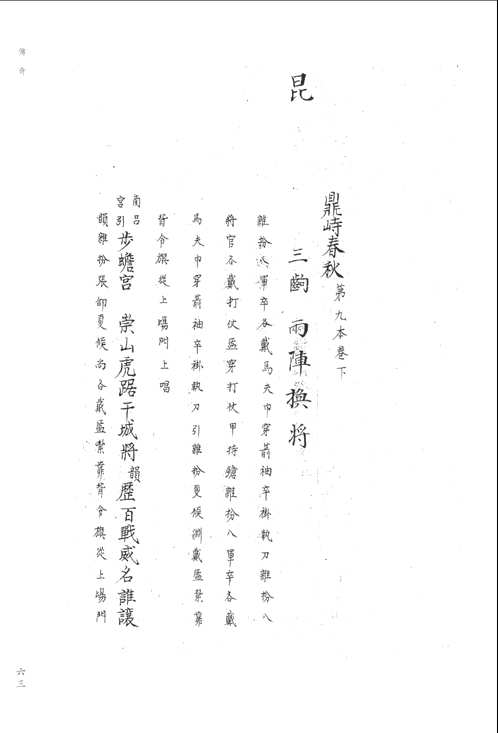 傳奇
昆
鼎峙春秋 第九本卷下
三齣 兩陣換將
雜扮八軍卒各戴馬夫巾穿箭袖卒褂執刀雜扮八
將官各戴打仗盔穿打仗甲持鎗雜扮八軍卒各戴
馬夫巾穿箭袖卒褂執刀引雜扮夏侯淵戴盔紮靠
背令旗從上場門上唱
南呂宮引 步蟾宮 崇山虎踞干城將韻歷百戰威名誰讓
韻雜扮張郃夏侯尚各戴盔紮靠背令旗從上場門
六三